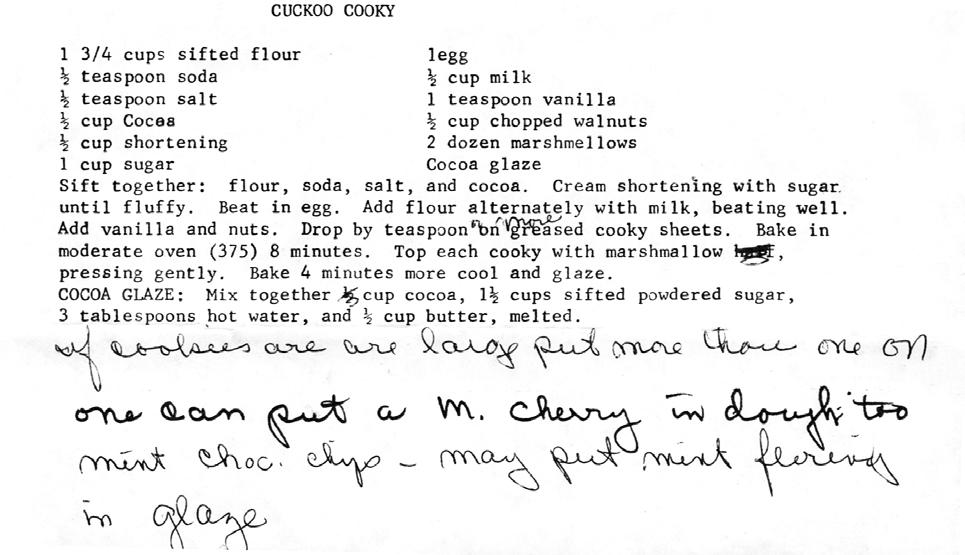 CUCKOO COOKY
1 3/4 cups sifted flour
½ teaspoon soda
½ teaspoon salt
½ cup Cocoa
½ cup shortening
1 cup sugar
1egg
½ cup milk
1 teaspoon vanilla
½ cup chopped walnuts
2 dozen marshmellows
Cocoa glaze
Sift together: flour, soda, salt, and cocoa. Cream shortening with sugar
until fluffy. Beat in egg. Add flour alternately with milk, beating well.
or more
Add vanilla and nuts. Drop by teaspoon on greased cooky sheets. Bake in
moderate oven (375) 8 minutes. Top each cooky with marshmallow ,
pressing gently. Bake 4 minutes more cool and glaze.
COCOA GLAZE: Mix together cup cocoa, 1½ cups sifted powdered sugar,
3 tablespoons hot water, and ½ cup butter, melted.
if cookies are are large put more than one on
one can put a M. cherry in dough too
mint choc. chips - may put mint
in glaze